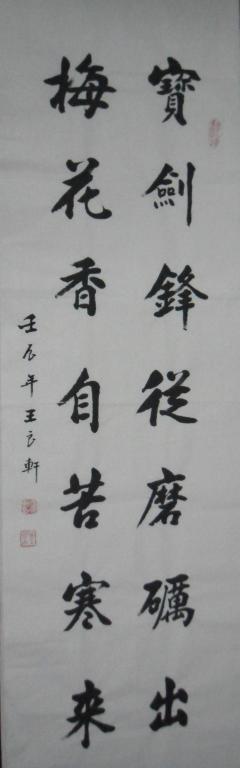 寶劍鋒從磨礪出
梅花香自苦寒來
壬辰年王良軒